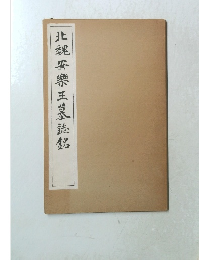 北魏安樂王墓誌銘